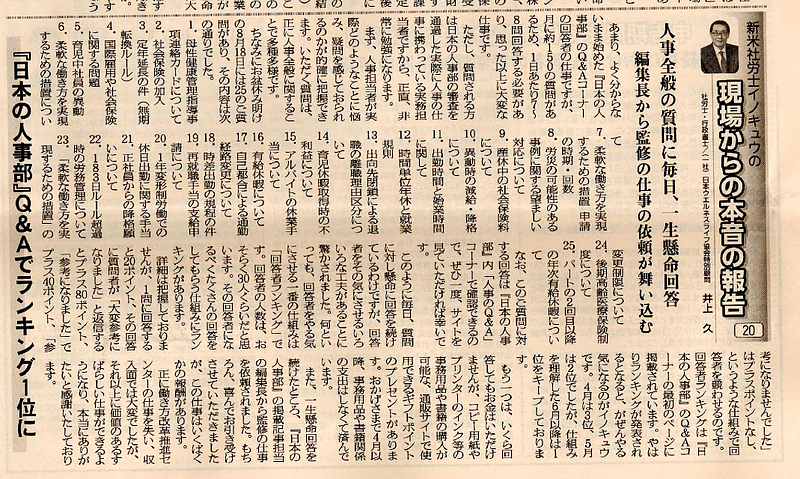 新米社労士イノキュウの
現場からの本音の報告
20
社労士・行政書士/(一社)日本ウエルネスライフ協会特別顧問
井上 久
人事全般の質問に毎日、一生懸命回答
編集長から監修の仕事の依頼が舞い込む
『日本の人事部』Q&Aでランキング1位に
あまり、よく分からな
いまま始めた『日本の人
事部』のQ&Aコーナー
の回答者の仕事ですが、
月に約150の質問があ
るため、1日あたり7〜
8問回答する必要があ
り、思った以上に大変な
仕事です。
ただし、質問される方
は日本の人事部の審査を
通過した実際に人事の仕
事に携わっている実務担
当者ですから、正直、非
常に勉強になります。
まず、人事担当者が実
際どのようなことに悩
み、疑問を感じておられ
るのか的確に把握できて
います。いただく質問は、
正に人事全般に関するこ
とで多種多様です。
ちなみにお盆休み明け
の8月18日には25のご質
問があり、その内容は次
の通りでした。
1．母性健康管理指導事
項連絡カードについて
2．社会保険の加入
3．定年延長の件（無期
転換ルール）
4．国際雇用や社会保険
に関する問題
5．育児中社員の異動
6．柔軟な働き方を実現
するための措置につい
て
7．柔軟な働き方を実現
するための措置 申請
の時期・回数
8．労災の可能性のある
事例に関する望ましい
対応について
9．産休中の社会保険料
について
10．異動時の減給・降格
について
11．出勤時間と始業時間
に関して
12．時間単位年休と就業
規則
13．出向先閉鎖による退
職の離職理由区分につ
いて
14．育児休暇取得時の不
利益について
15．アルバイトの休業手
当について
16．有給休暇について
17．自己都合による通勤
経路変更について
18．時差出勤の規程の件
19．再就職手当の支給申
請について
20．1年変形制労働での
休日出勤に関する手当
21．正社員からの降格願
いについて
22．1883日ルール超過
時の労務管理について
23．「柔軟な働き方を実
現するための措置」の
変更制限について
24．後期高齢医療保険制
度について
25．パートの2回目以降
の年次有給休暇につい
て
なお、このご質問に対
する回答は『日本の人事
部』内「人事のQ&A」
コーナーで確認できるの
で、ぜひ一度、サイトを
見ていただければ幸いで
す。
このように毎日、質問
に対し懸命に回答を続け
ているわけですが、回答
者をその気にさせるいろ
いろな工夫があることに
驚かされました。何とい
っても、回答者をやる気
にさせる一番の仕組みは
「回答者ランキング」で
す。回答者の人数は、お
そらく30人くらいだと思
います。その回答者にな
るべくたくさんの回答を
してもらう仕組みにラン
キングがあります。
詳細は把握しておりま
せんが、1問に回答する
と20ポイント、その回答
に質問者が「大変参考に
なりました」と返信する
とプラス80ポイント、
「参考になりました」で
プラス40ポイント、「参
考になりませんでした」
はプラスポイントなし、
というような仕組みで回
答者を競わせるのです。
回答者ランキングは『日
本の人事部』のQ&Aコ
ーナーの最初のページに
掲載されています。やは
りランキングが発表され
るとなると、がぜんやる
気になるのがイノキュウ
です。4月は8位、5月
は2位でしたが、仕組み
を理解した6月以降は1
位をキープしておりま
す。
もう一つは、いくら回
答してもお金はいただけ
ませんが、コピー用紙や
プリンターのインク等の
事務用品や書籍の購入が
可能な、通販サイトで使
用できるギフトポイント
のプレゼントがありま
す。おかげさまで4月以
降、事務用品や書籍関係
の支出はしなくて済んで
います。
また、一生懸命回答を
続けたところ、『日本の
人事部』の掲載記事担当
の編集長から監修の仕事
を依頼されました。もち
ろん、喜んでお引き受け
させていただきました
が、この仕事はいくばく
かの報酬があります。
正に働き方改革推進セ
ンターの仕事を失い、収
入面では大変でしたが、
それ以上に価値のあるす
ばらしい仕事ができるよ
うになり、本当にありが
たいと感謝いたしており
ます。